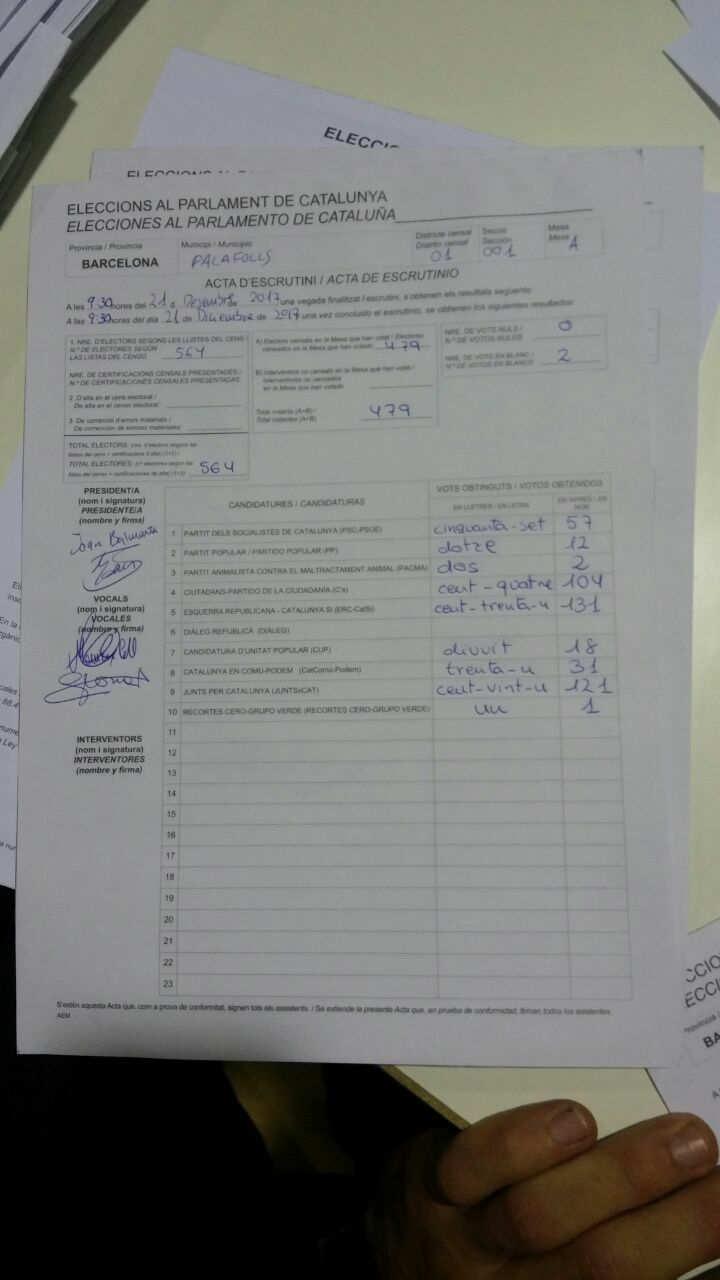 ELECCIO
ELECCIONS AL PARLAMENT DE CATALUNYA
ELECCIONES AL PARLAMENTO DE CATALUÑA
Província / Provincia
BARCELONA
Municipi / Municipio
PALAFOLLS
Districte censal
Distrito censal
01
Secció
Sección
001
Mesa
Mesa
A
ACTA D'ESCRUTINI / ACTA DE ESCRUTINIO
A les 9:30 hores del 21 d Dezembre de 2017 una vegada finalitzat l'escrutini, s'obtenen els resultats següents:
A las 9:30 horas del día 21 de Diciembre de 2017 una vez concluido el escrutinio, se obtienen los siguientes resultados:
1. NRE. D'ELECTORS SEGONS LES LLISTES DEL CENS /
N.º DE ELECTORES SEGÚN
LAS LISTAS DEL CENSO 564
NRE. DE CERTIFICACIONS CENSALS PRESENTADES /
N.º DE CERTIFICACIONES CENSALES PRESENTADAS
2. D'alta en el cens electoral /
De alta en el censo electoral:
3. De correcció d'errors materials /
De corrección de errores materiales:
TOTAL ELECTORS: (nre. d'electors segons les
llistes del cens + certificacions d'alta) (1+2) /
TOTAL ELECTORES: (nº electores según las
listas del censo + certificaciones de alta) (1+2) 564
A) Electors censats en la Mesa que han votat / Electores
censados en la Mesa que han votado 479
B) Interventors no censats en la Mesa que han votat /
Interventores no censados
en la Mesa que han votado
Total votants (A+B) /
Total votantes (A+B) 479
NRE. DE VOTS NULS /
N.º DE VOTOS NULOS 0
NRE. DE VOTS EN BLANC /
N.º DE VOTOS EN BLANCO 2
PRESIDENT/A
(nom i signatura)
PRESIDENTE/A
(nombre y firma)
VOCALS
(nom i signatura)
VOCALES
(nombre y firma)
INTERVENTORS
(nom i signatura)
INTERVENTORES
(nombre y firma)
CANDIDATURES / CANDIDATURAS
VOTS OBTINGUTS / VOTOS OBTENIDOS
EN LLETRES / EN LETRA
EN XIFRES / EN NÚM
1 PARTIT DELS SOCIALISTES DE CATALUNYA (PSC-PSOE) cinquanta-set 57
2 PARTIT POPULAR / PARTIDO POPULAR (PP) dotze 12
3 PARTIT ANIMALISTA CONTRA EL MALTRACTAMENT ANIMAL (PACMA) dos 2
4 CIUTADANS-PARTIDO DE LA CIUDADANÍA (C's) cent-quatre 104
5 ESQUERRA REPUBLICANA - CATALUNYA SÍ (ERC-CatSí) cent-trenta-u 131
6 DIÀLEG REPUBLICÀ (DIÀLEG)
7 CANDIDATURA D'UNITAT POPULAR (CUP) divuit 18
8 CATALUNYA EN COMÚ-PODEM (CatComú-Podem) trenta-u 31
9 JUNTS PER CATALUNYA (JUNTSxCAT) cent-vint-u 121
10 RECORTES CERO-GRUPO VERDE (RECORTES CERO-GRUPO VERDE) un 1
11
12
13
14
15
16
17
18
19
20
21
22
23
S'estén aquesta Acta que, com a prova de conformitat, signen tots els assistents. / Se extiende la presente Acta que, en prueba de conformidad, firman todos los asistentes.
AEM